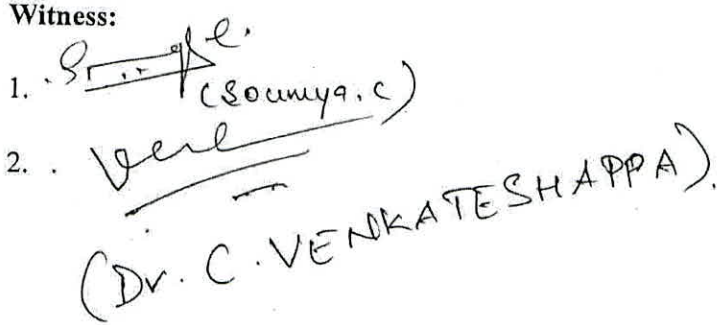 Witness:
1.
(Soumya.C)
2.
(Dr. C. VENKATESHAPPA).